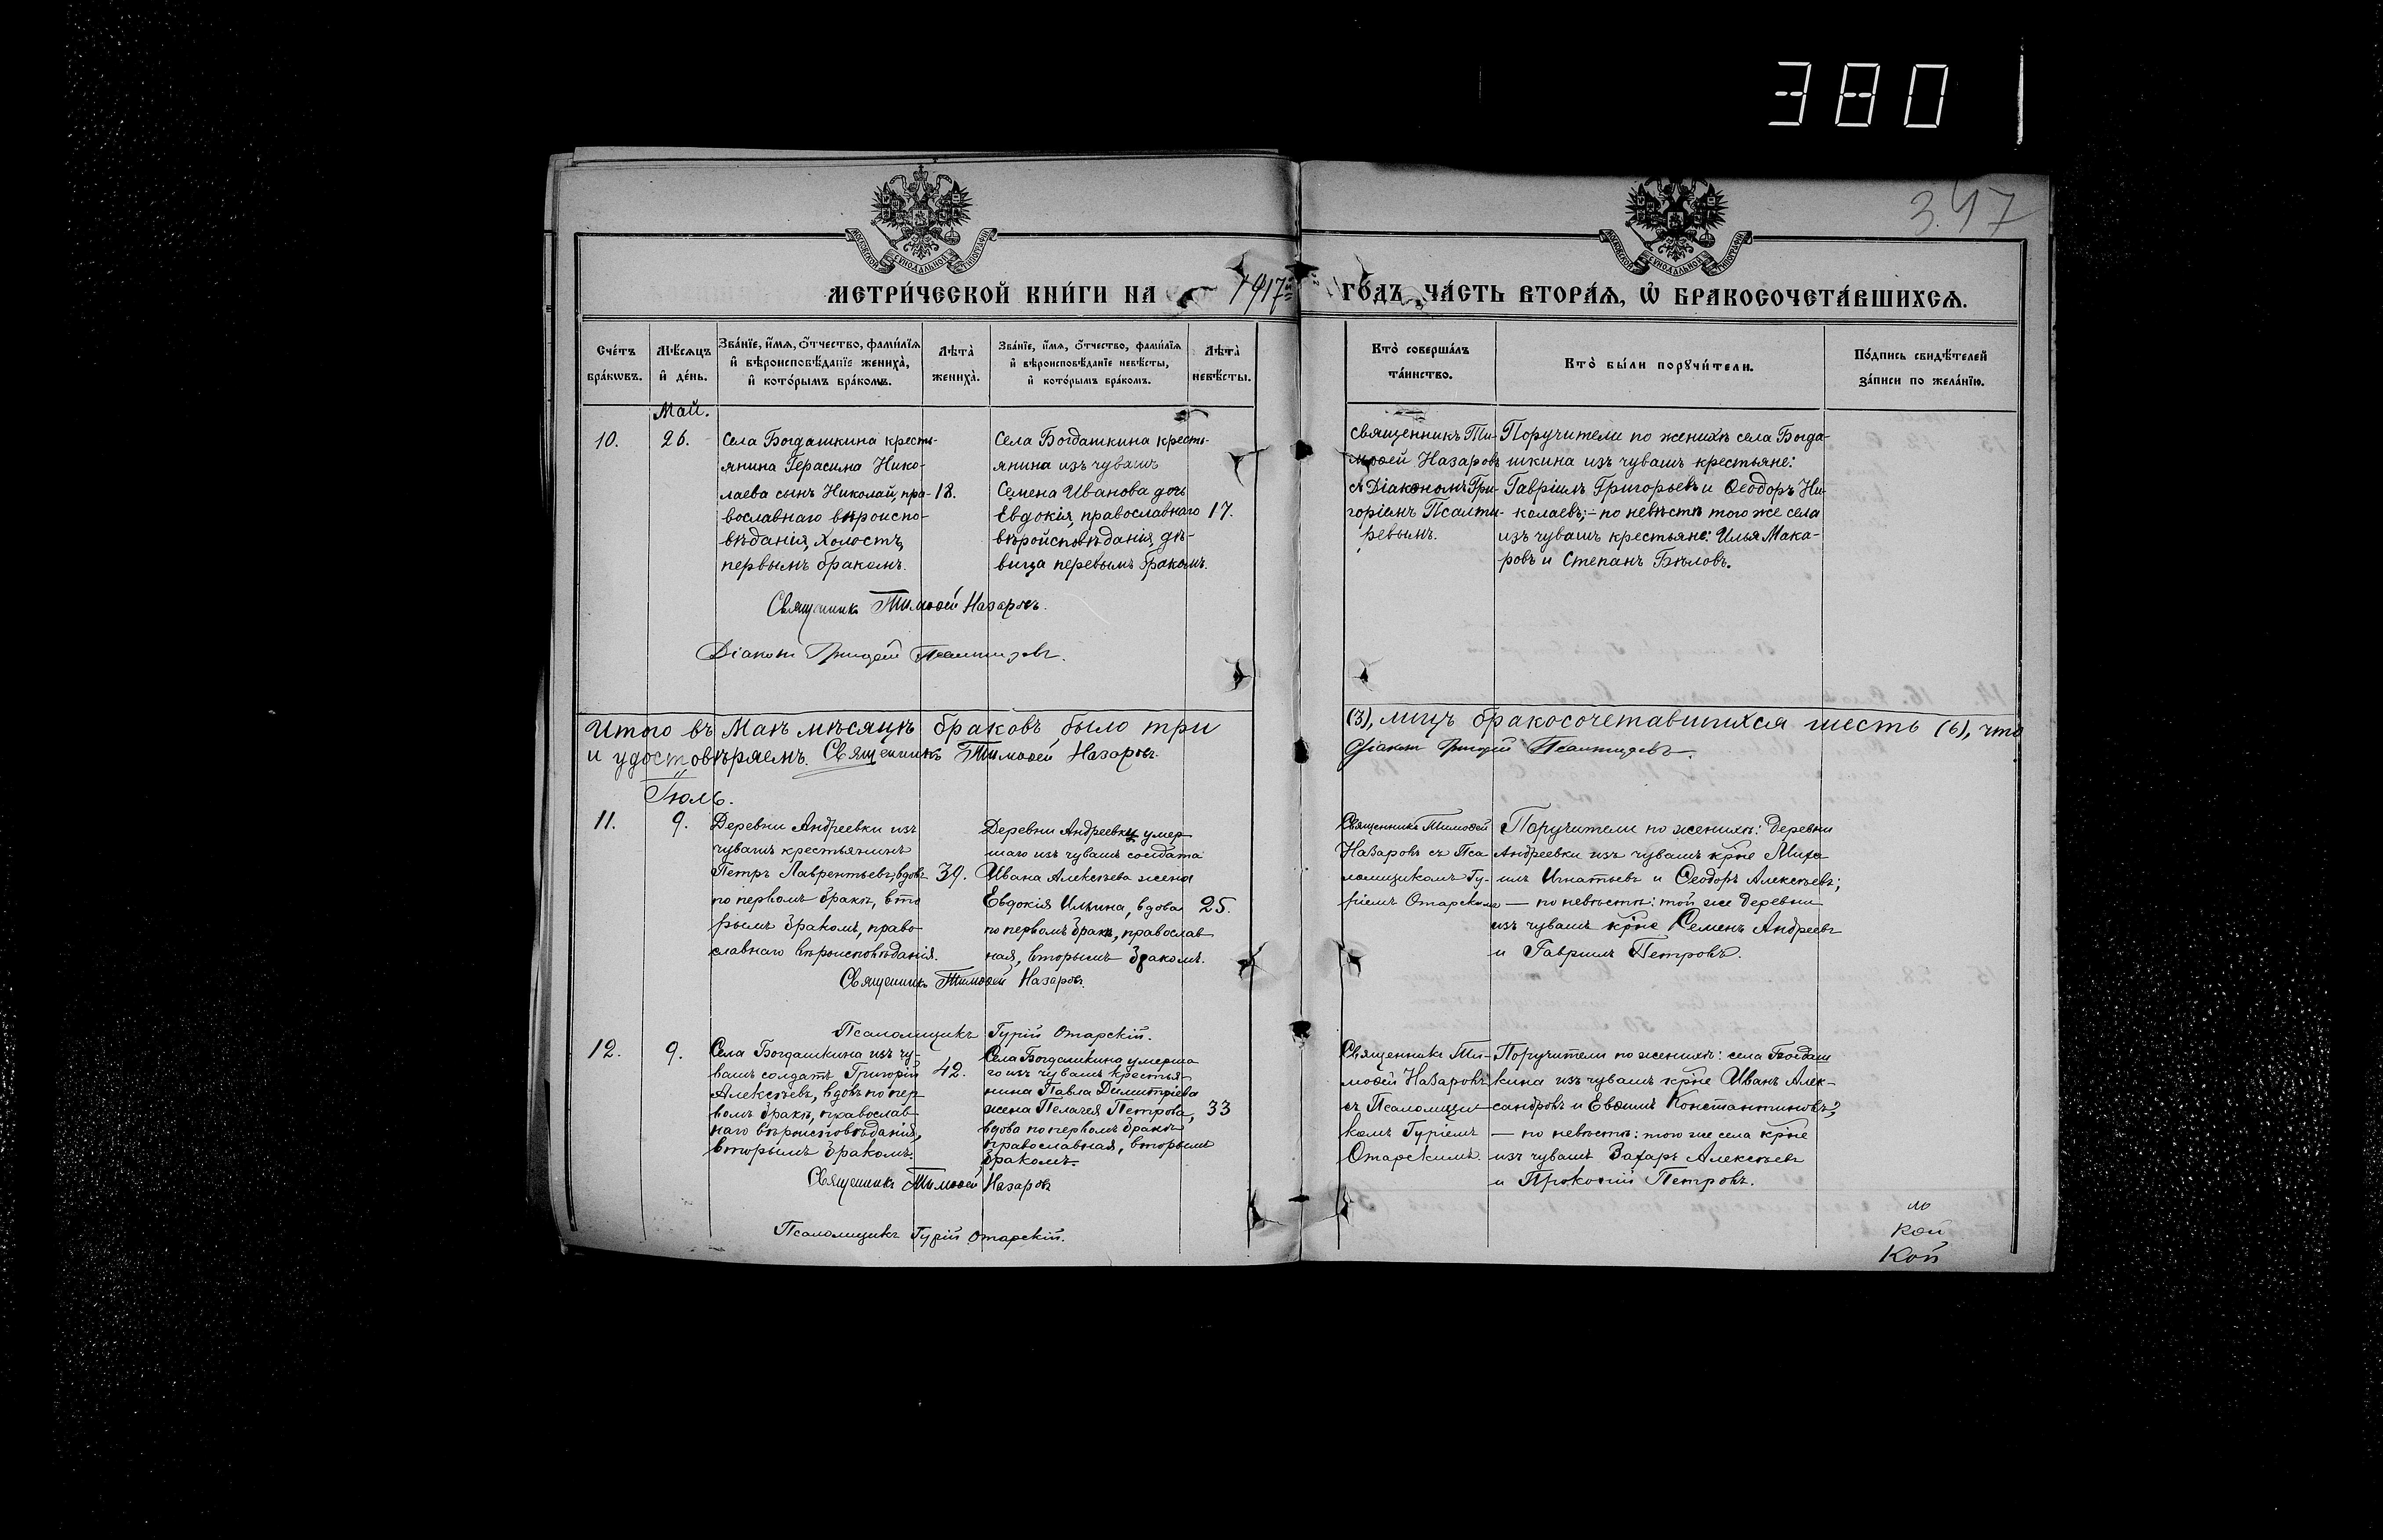 380
347
МОСКОВСКОЙ СѴНОДАЛЬНОЙ ТИПОГРАФІИ
МОСКОВСКОЙ СѴНОДАЛЬНОЙ ТИПОГРАФІИ
МЕТРИ́ЧЕСКОЙ КНИ́ГИ НА 1917й ГО́ДЪ, ЧА́СТЬ ВТОРА́Ѧ, Ѽ БРАКОСОЧЕТА́ВШИХСѦ.
Сче́тъ бра́кѡвъ.
Мѣ́сѧцъ и҆ де́нь.
Зва́нїе, и҆́мѧ, ѻ҆́тчество, фами́лїѧ и҆ вѣроисповѣ́данїе жениха̀, и҆ кото́рымъ бра́комъ.
Лѣ́та̀ жениха̀.
Зва́нїе, и҆́мѧ, ѻ҆́тчество, фами́лїѧ и҆ вѣроисповѣ́данїе невѣ́сты, и҆ кото́рымъ бра́комъ.
Лѣ́та̀ невѣ́сты.
Кто̀ соверша́лъ та́инство.
Кто̀ бы́ли порꙋчи́тели.
По́дпись свидѣ́телей за́писи по жела́нїю.
Май.
10.
26.
Села Богдашкина кресть-
янина Герасима Нико-
лаева сынъ Николай, пра-
вославнаго вѣроиспо-
вѣданія, холостъ,
первымъ бракомъ.
18.
Села Богдашкина кресть-
янина изъ чувашъ
Семена Иванова дочь
Евдокія, православнаго
вѣроисповѣданія, дѣ-
вица первымъ бракомъ.
17.
Священникъ Ти-
моѳей Назаровъ
съ Діакономъ Гри-
горіемъ Псалти-
ревымъ.
Поручители по женихѣ села Богда-
шкина изъ чувашъ крестьяне:
Гавріилъ Григорьевъ и Ѳеодоръ Ни-
колаевъ; – по невѣстѣ того же села
изъ чувашъ крестьяне: Илья Мака-
ровъ и Степанъ Бѣловъ.
Священникъ Тимоѳей Назаровъ.
Діаконъ Григорій Псалтиревъ.
Итого въ Маѣ мѣсяцѣ браковъ было три (3), лицъ бракосочетавшихся шесть (6), что
и удостовѣряемъ. Священникъ Тимоѳей Назаровъ. Діаконъ Григорій Псалтиревъ.
Іюль.
11.
9.
Деревни Андреевки изъ
чувашъ крестьянинъ
Петръ Лаврентьевъ, вдовъ
по первомъ бракѣ, вто
рымъ бракомъ, право-
славнаго вѣроисповѣданія.
39.
Деревни Андреевки умер
шаго изъ чувашъ солдата
Ивана Алексѣева жена
Евдокія Ильина, вдова
по первомъ бракѣ, православ
ная, вторымъ бракомъ.
25.
Священникъ Тимоѳей
Назаровъ съ Пса
ломщикомъ Гу-
ріемъ Отарскимъ
Поручители по женихѣ: деревни
Андреевки изъ чувашъ кр̃не Миха
илъ Игнатьевъ и Ѳеодоръ Алексѣевъ;
— по невѣстѣ: той же деревни
изъ чувашъ кр̃не Семенъ Андреевъ
и Гавріилъ Петровъ.
Священникъ Тимоѳей Назаровъ.
Псаломщикъ Гурій Отарскій.
12.
9.
Села Богдашкина изъ чу-
вашъ солдатъ Григорій
Алексѣевъ, вдовъ по пер
вомъ бракѣ, православ-
наго вѣроисповѣданія,
вторымъ бракомъ.
42.
Села Богдашкина умерша
го изъ чувашъ крестья-
нина Павла Димитріева
жена Пелагея Петрова,
вдова по первомъ бракѣ
православная, вторымъ
бракомъ.
33
Священникъ Ти-
моѳей Назаровъ
съ Псаломщи-
комъ Гуріемъ
Отарскимъ.
Поручители по женихѣ: села Богдаш
кина изъ чувашъ кр̃не Иванъ Алек-
сандровъ и Евѳимъ Константиновъ;
— по невѣстѣ: того же села кр̃не
изъ чувашъ Захаръ Алексѣевъ
и Прокопій Петровъ.
Священникъ Тимоѳей Назаровъ
Псаломщикъ Гурій Отарскій.
кой
кой